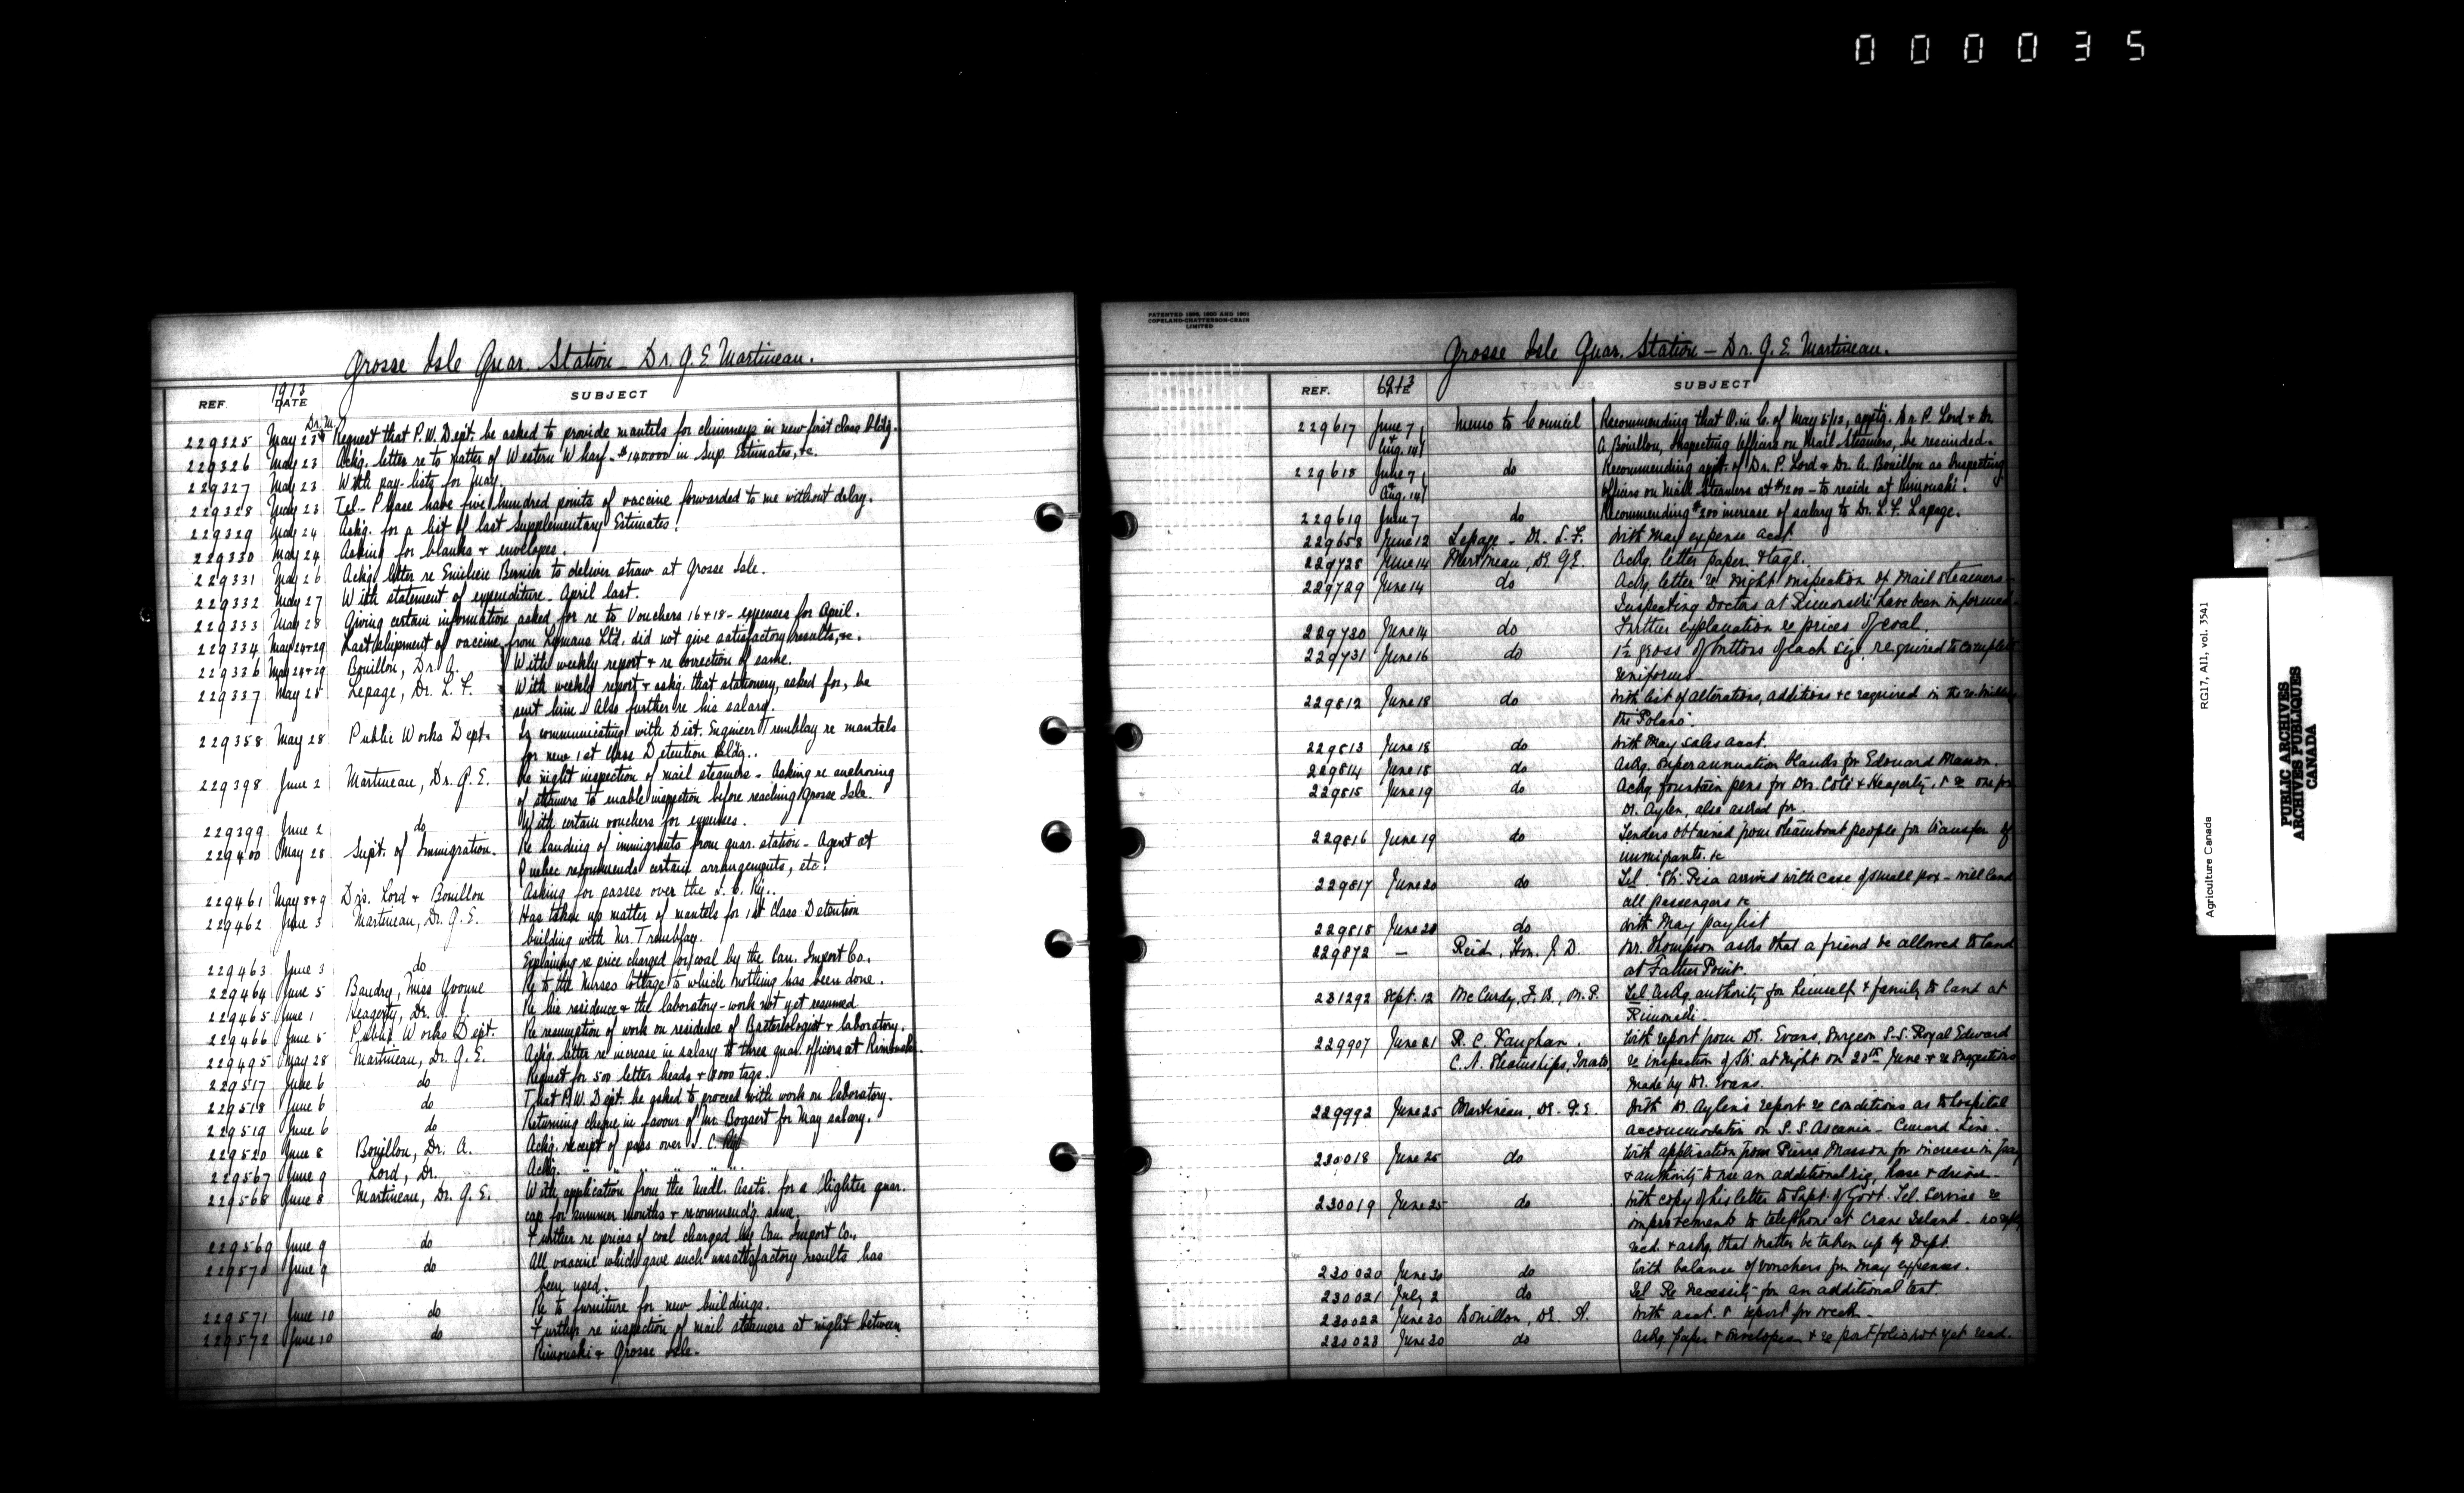 000035
Grosse Isle Quar. Station - Dr. G. E. Martineau.
REF. 1913 DATE SUBJECT
229325 May 23 Dr. M. Request that P. W. Dept. be asked to provide mantels for chimneys in new first class Bldg.
229326 May 23 Ackg. letter re to matter of Western Wharf - $140.000 in Sup. Estimates, &c.
229327 May 23 With pay-lists for May.
229328 May 23 Tel - Please have five hundred points of vaccine forwarded to me without delay.
229329 May 24 Askg. for a list of last Supplementary Estimates.
229330 May 24 Asking for blanks + envelopes.
229331 May 26 Ackg. letter re Bernier to deliver straw at Grosse Isle.
229332 May 27 With statement of expenditure - April last.
229333 May 28 Giving certain information asked for re to Vouchers 16+18 - expenses for April.
229334 May 24+29 Last shipment of vaccine from Lymans Ltd. did not give satisfactory results, &c.
229336 May 24+29 Bouillon, Dr. A. With weekly report + re correction of same.
229337 May 28 Lepage, Dr. L. F. With weekly report + askg. that stationery, asked for, be
sent him. Also further re his salary.
229358 May 28 Public Works Dept. Is communicating with Dist. Engineer Tremblay re mantels
for new 1st Class Detention Bldg.
229398 June 2 Martineau, Dr. G. E. Re night inspection of mail steamers - Asking re anchoring
of steamers to enable inspection before reaching Grosse Isle.
229399 June 2 do With certain vouchers for expenses.
229400 May 28 Supt. of Immigration. Re landing of immigrants from quar. station - Agent at
Quebec recommends certain arrangements, etc.
229461 May 8+9 Drs. Lord + Bouillon Asking for passes over the I. C. Ry.
229462 June 3 Martineau, Dr. G. E. Has taken up matter of mantels for 1st Class Detention
building with Mr. Tremblay.
229463 June 3 do Explaining re price charged for coal by the Can. Import Co.
229464 June 5 Baudry, Miss Yvonne Re to the Nurses Cottage to which nothing has been done.
229465 June 1 Heagerty, Dr. J. J. Re his residence + the laboratory - work not yet resumed
229466 June 5 Public Works Dept. Re resumption of work on residence of Bacteriologist + laboratory.
229495 May 28 Martineau, Dr. G. E. Ackg. letter re increase in salary to three quar. officers at Rimouski.
229517 June 6 do Request for 500 letter heads + 1000 tags.
229518 June 6 do That P. W. Dept. be asked to proceed with work on laboratory.
229519 June 6 do Returning cheque in favour of Mr. Bogaert for May salary.
229520 June 8 Bouillon, Dr. A. Ackg. receipt of pass over I. C. Ry
229567 June 9 Lord, Dr. Ackg. " " " " "
229568 June 8 Martineau, Dr. G. E. With application from the Medl. Assts. for a lighter quar.
cap for summer months + recommendg. same.
229569 June 9 do Further re prices of coal charged by Can. Import Co.
229570 June 9 do All vaccine which gave such unsatisfactory results has
been used.
229571 June 10 do Re to furniture for new buildings.
229572 June 10 do Further re inspection of mail steamers at night between
Rimouski + Grosse Isle.
PATENTED 1896, 1900 AND 1901
COPELAND-CHATTERSON-CRAIN
LIMITED
Grosse Isle Quar. Station - Dr. G. E. Martineau.
REF. 1913 DATE SUBJECT
229617 June 7, + Aug. 14 Memo to Council Recommending that O. in C. of May 5/13, apptg. Dr. P. Lord + Dr.
A. Bouillon, Inspecting Officers on Mail Steamers, be rescinded.
229618 June 7, + Aug. 14 do Recommending appt. of Dr. P. Lord + Dr. A. Bouillon as Inspecting
Officers on Mail Steamers at $1200 - to reside at Rimouski.
229619 June 7 do Recommending $200 increase of salary to Dr. L. F. Lepage.
229658 June 12 Lepage - Dr. L. F. With May expense acct.
229728 June 14 Martineau, Dr. G E. Ackg. letter paper + tags.
229729 June 14 do Ackg. letter re night inspection of Mail Steamers -
Inspecting Doctors at Rimouski have been informed.
229730 June 14 do Further explanation re prices of coal.
229731 June 16 do 1½ gross of buttons of each size required to complete
uniforms -
229812 June 18 do With list of alterations, additions +c required in the
the "Polana".
229813 June 18 do With May sales acct.
229814 June 18 do Askg. superannuation blanks for Edouard Masson.
229815 June 19 do Ackg. fountain pens for Drs. Coté + Heagerty, + re one for
Dr. Aylen, also asked for.
229816 June 19 do Tenders obtained from steamboat people for transfer of
immigrants. &c
229817 June 20 do Tel. "Str. Pisa arrived with case of small pox - will land
all passengers &c
229818 June 20 do With May paylist
229872 — Reid, Hon. J. D. Mr. Thompson asks that a friend be allowed to land
at Father Point.
231292 Sept. 12 McCurdy, F. B., M. P. Tel. Askg. authority for himself + family to land at
Rimouski -
229907 June 21 R. C. Vaughan, With report from Dr. Evans, Surgeon S.S. Royal Edward
C. N. Steamships, Toronto, re inspection of Str. at night on 20th June + re suggestions
made by Dr. Evans.
229992 June 25 Martineau, Dr. G. E. With Dr. Aylen's report re conditions as to hospital
accommodation on S. S. Ascania - Cunard Line.
230018 June 25 do With application from Pierre Masson for increase in pay
+ authority to use an additional rig, horse + driver.
230019 June 25 do With copy of his letter to Supt. of Govt. Tel. Service re
improvements to telephone at Crane Island - no reply
recd. + askg. that matter be taken up by Dept.
230020 June 30 do With balance of vouchers for May expenses.
230021 July 2 do Tel Re necessity for an additional tent.
230022 June 30 Bouillon, Dr. A. With acct. + report for week.
230023 June 30 do Ackg. paper + envelopes + re portfolio not yet recd.
RG17, AII, vol. 3541
Agriculture Canada
PUBLIC ARCHIVES
ARCHIVES PUBLIQUES
CANADA